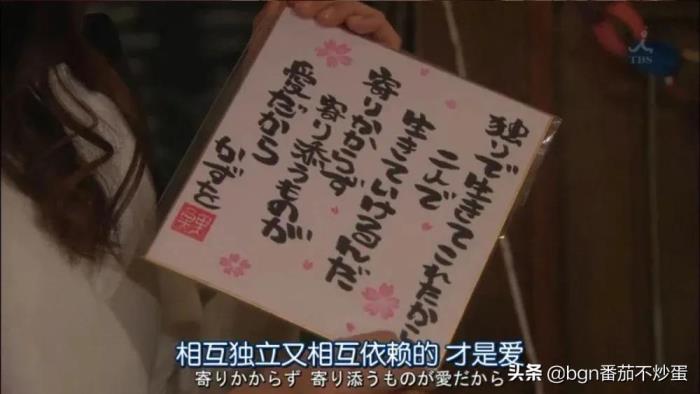 TBS
独りで生きてこれたから
二人で
生きていけるんだ
寄りかからず
寄り添うものが
愛だから
かずを
相互独立又相互依赖的 才是爱
寄りかからず 寄り添うものが愛だから
头条 @bgn番茄不炒蛋